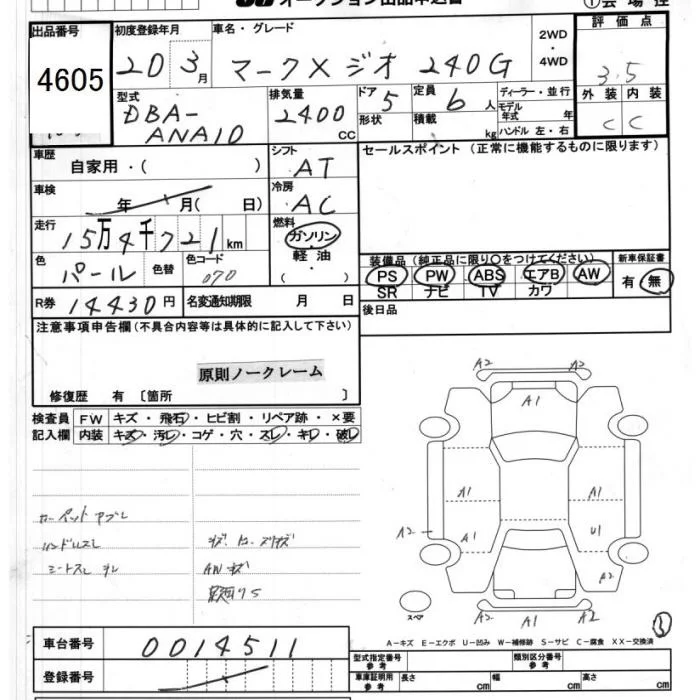 オークション出品申込書
①会場控
出品番号
4605
初度登録年月
20 3月
車名・グレード
マークXジオ 240G
2WD・4WD
評価点
3.5
外装 内装
C C
型式
DBA-ANA10
排気量
2400 CC
ドア 5
形状
定員 6人
積載 kg
ディーラー・並行
モデル年式 年
ハンドル 左・右
車歴
自家用・( )
シフト
AT
セールスポイント (正常に機能するものに限ります)
車検
年 月( 日)
冷房
AC
走行
15万4千721km
燃料
ガソリン
軽油・
( )
色
パール
色替
色コード
070
装備品 (純正品に限り○をつけてください)
PS PW ABS エアB AW
SR ナビ TV カワ
新車保証書
有 無
R券 14430円
名変通知期限 月 日
後日品
注意事項申告欄(不具合内容等は具体的に記入して下さい)
原則ノークレーム
修復歴 有 〔箇所 〕
検査員記入欄
FW キズ・飛石・ヒビ割・リペア跡・×要
内装 キズ・汚レ・コゲ・穴・スレ・キレ・破レ
カーペットヤブレ
AWキズ
A2 A2
A1
A1 A1
A2 A1 U1
A2
A2 A1 A2
スペア
A-キズ E-エクボ U-凹み W-補修跡 S-サビ C-腐食 XX-交換済
車台番号
0014511
登録番号
型式指定番号 参考
類別区分番号 参考
車庫証明用 参考
長さ cm 幅 cm 高さ cm